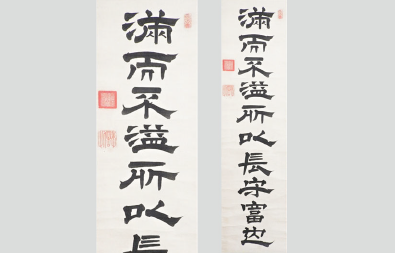 滿而不溢所以長
滿而不溢所以長守富也